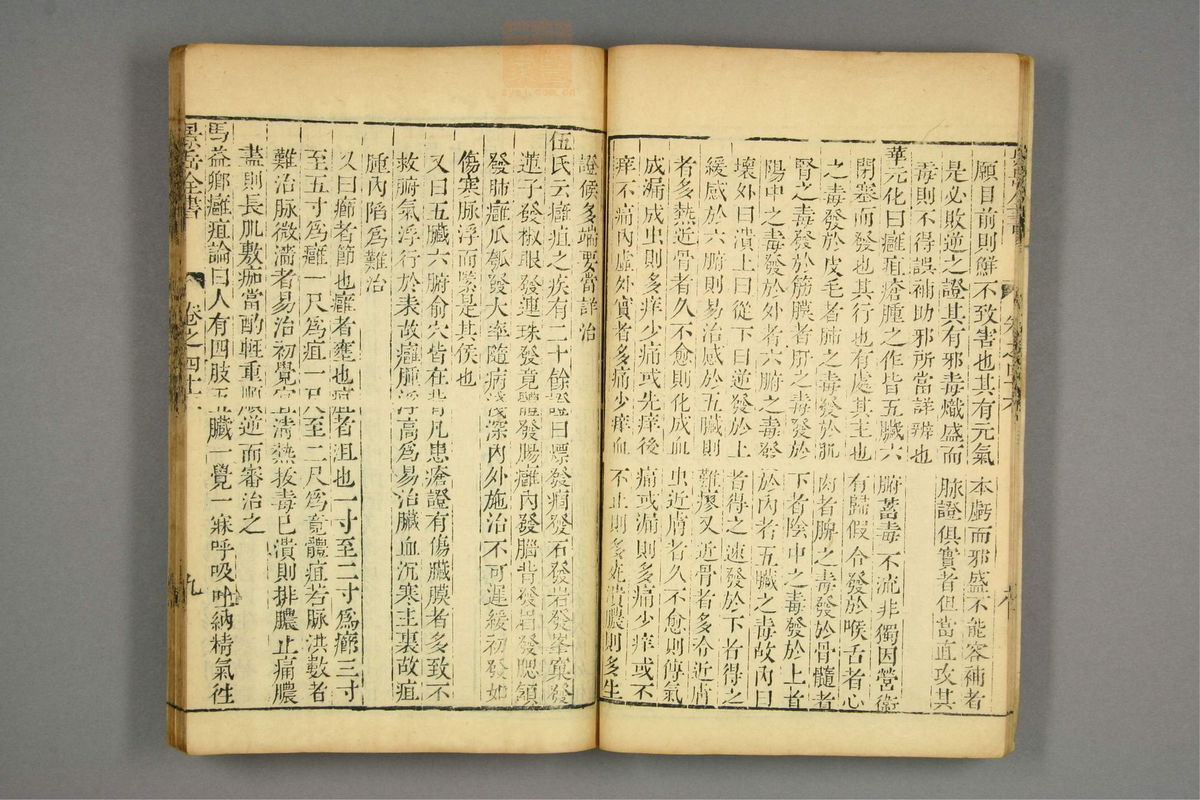 願目前則鮮不致害也其有元氣本虧而邪盛不能容補者
是必敗逆之證其有邪毒熾盛而脉證俱實者但當直攻其
毒則不得誤補助邪所當詳辨也
華元化曰癰疽瘡腫之作皆五臟六腑蓄毒不流非獨因營衛
閉塞而發也其行也有處其主也有歸假令發於喉舌者心
之毒發於皮毛者肺之毒發於肌肉者脾之毒發於骨髓者
腎之毒發於筋膜者肝之毒發於下者陰中之毒發於上者
陽中之毒發於外者六腑之毒發於內者五臟之毒故內曰
壞外曰潰上曰從下曰逆發於上者得之速發於下者得之
緩感於六腑則易治感於五臟則難瘳又近骨者多冷近膚
者多熱近骨者久不愈則化成血虫近膚者久不愈則傳氣
成漏成虫則多痒少痛或先痒後痛成漏則多痛少痒或不
痒不痛內虛外實者多痛少痒血不止則多死潰膿則多生
證候多端要當詳治
伍氏云癰疽之疾有二十餘證曰瘭發瘤發石發岩發蜂窠發
蓮子發椒眼發連珠發竟體發腸癰內發腦背發眉發腮頷
發肺癰瓜瓠發大率隨病淺深內外施治不可遲緩初發如
傷寒脉浮而緊是其侯也
又曰五臟六腑俞穴皆在背凡患瘡證有傷臟膜者多致不
救腑氣浮行於表故癰腫浮高爲易治臟血沉寒主裏故疽
腫內陷爲難治
又曰癤者節也癰者壅也疽者沮也一寸至二寸爲癤三寸
至五寸爲癰一尺爲疽一尺至二尺爲竟體疽若脉洪數者
難治脉微濇者易治初覺宜清熱拔毒已潰則排膿止痛膿
盡則長肌敷痂當酌輕重順逆而審治之
馬益卿癰疽論曰人有四肢五臟一覺一寐呼吸吐納精氣徃
景岳全書
卷之四十六
九